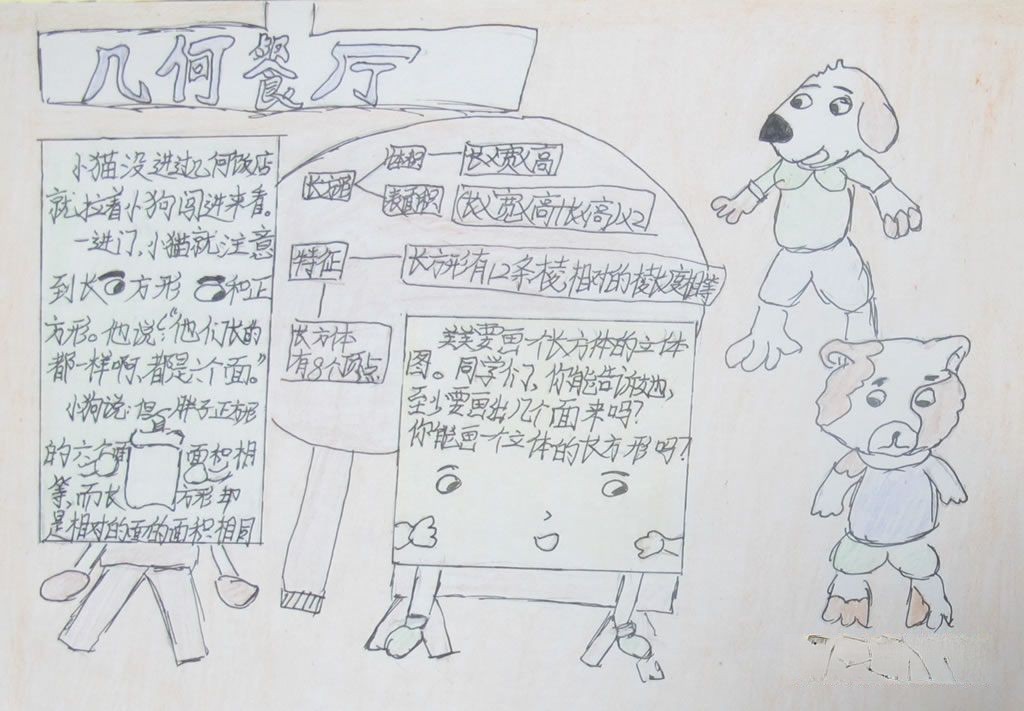 几何餐厅
小猫没进过几何饭店
就拉着小狗闯进来看。
一进门,小猫就注意
到长方形和正
方形。他说:“他们长的
都一样啊,都是六个面。”
小狗说:但胖子正方形
的六个面面积相
等,而长方形却
是相对的面的面积相同
体积
长X宽X高
表面积
特征
长方形有12条棱,相对的棱长度相等
长方体
有8个顶点
笑笑要画一个长方体的立体
图。同学们,你能告诉她,
至少要画出几个面来吗?
你能画一个立体的长方形吗?